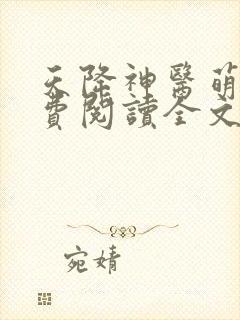 天降神醫萌
費閱讀全文
宛婧